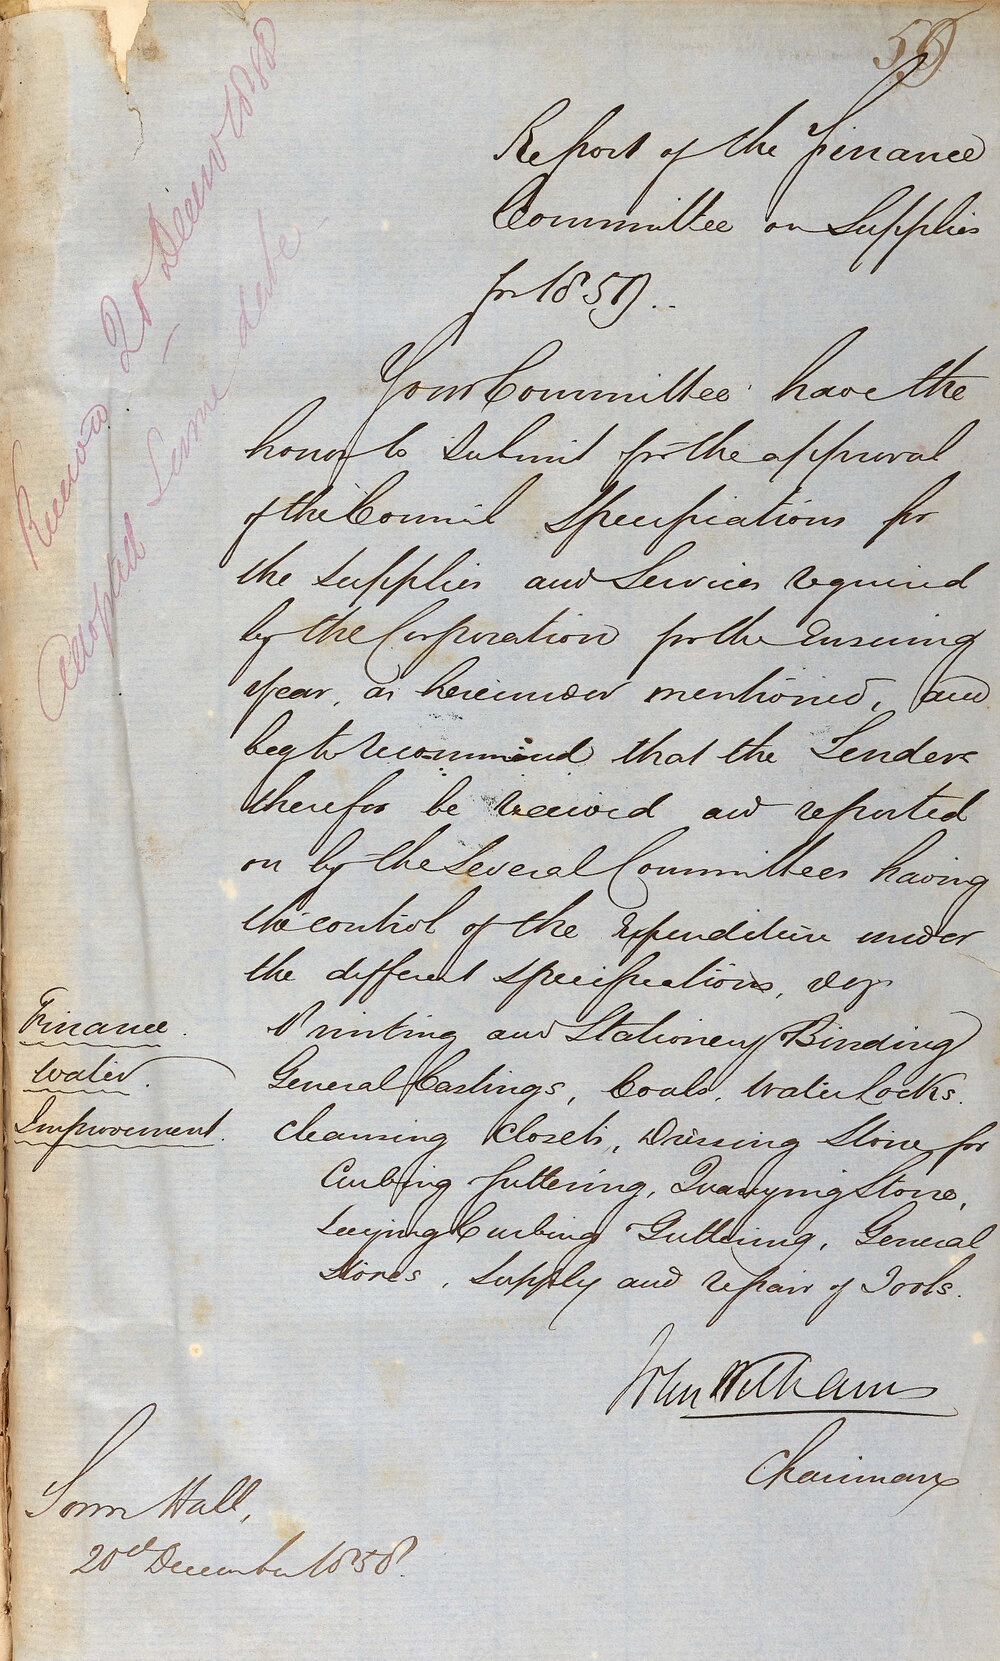 59
Received 20 Decem 1858
Adopted Same date
Report of the Finance
Committee on Supplies
for 1859..
Your Committee have the
honor to submit for the approval
of the Council Specifications for
the supplies and Services required
by the Corporation for the ensuing
year, as hereunder mentioned, and
beg to recommend that the Tenders
therefor be received and reported
on by the Several Committees having
the control of the Expenditure under
the different specifications, vizt
Finance. Printing and Stationery, Binding
Water. General Castings, Coals, Water Cocks.
Improvement. Cleansing Closets, Dressing Stone for
Curbing Guttering, Quarrying Stone,
Laying Curbing Guttering, General
Stores, Supply and repair of Tools.
John Williams
Chairman
Town Hall,
20th December 1858.